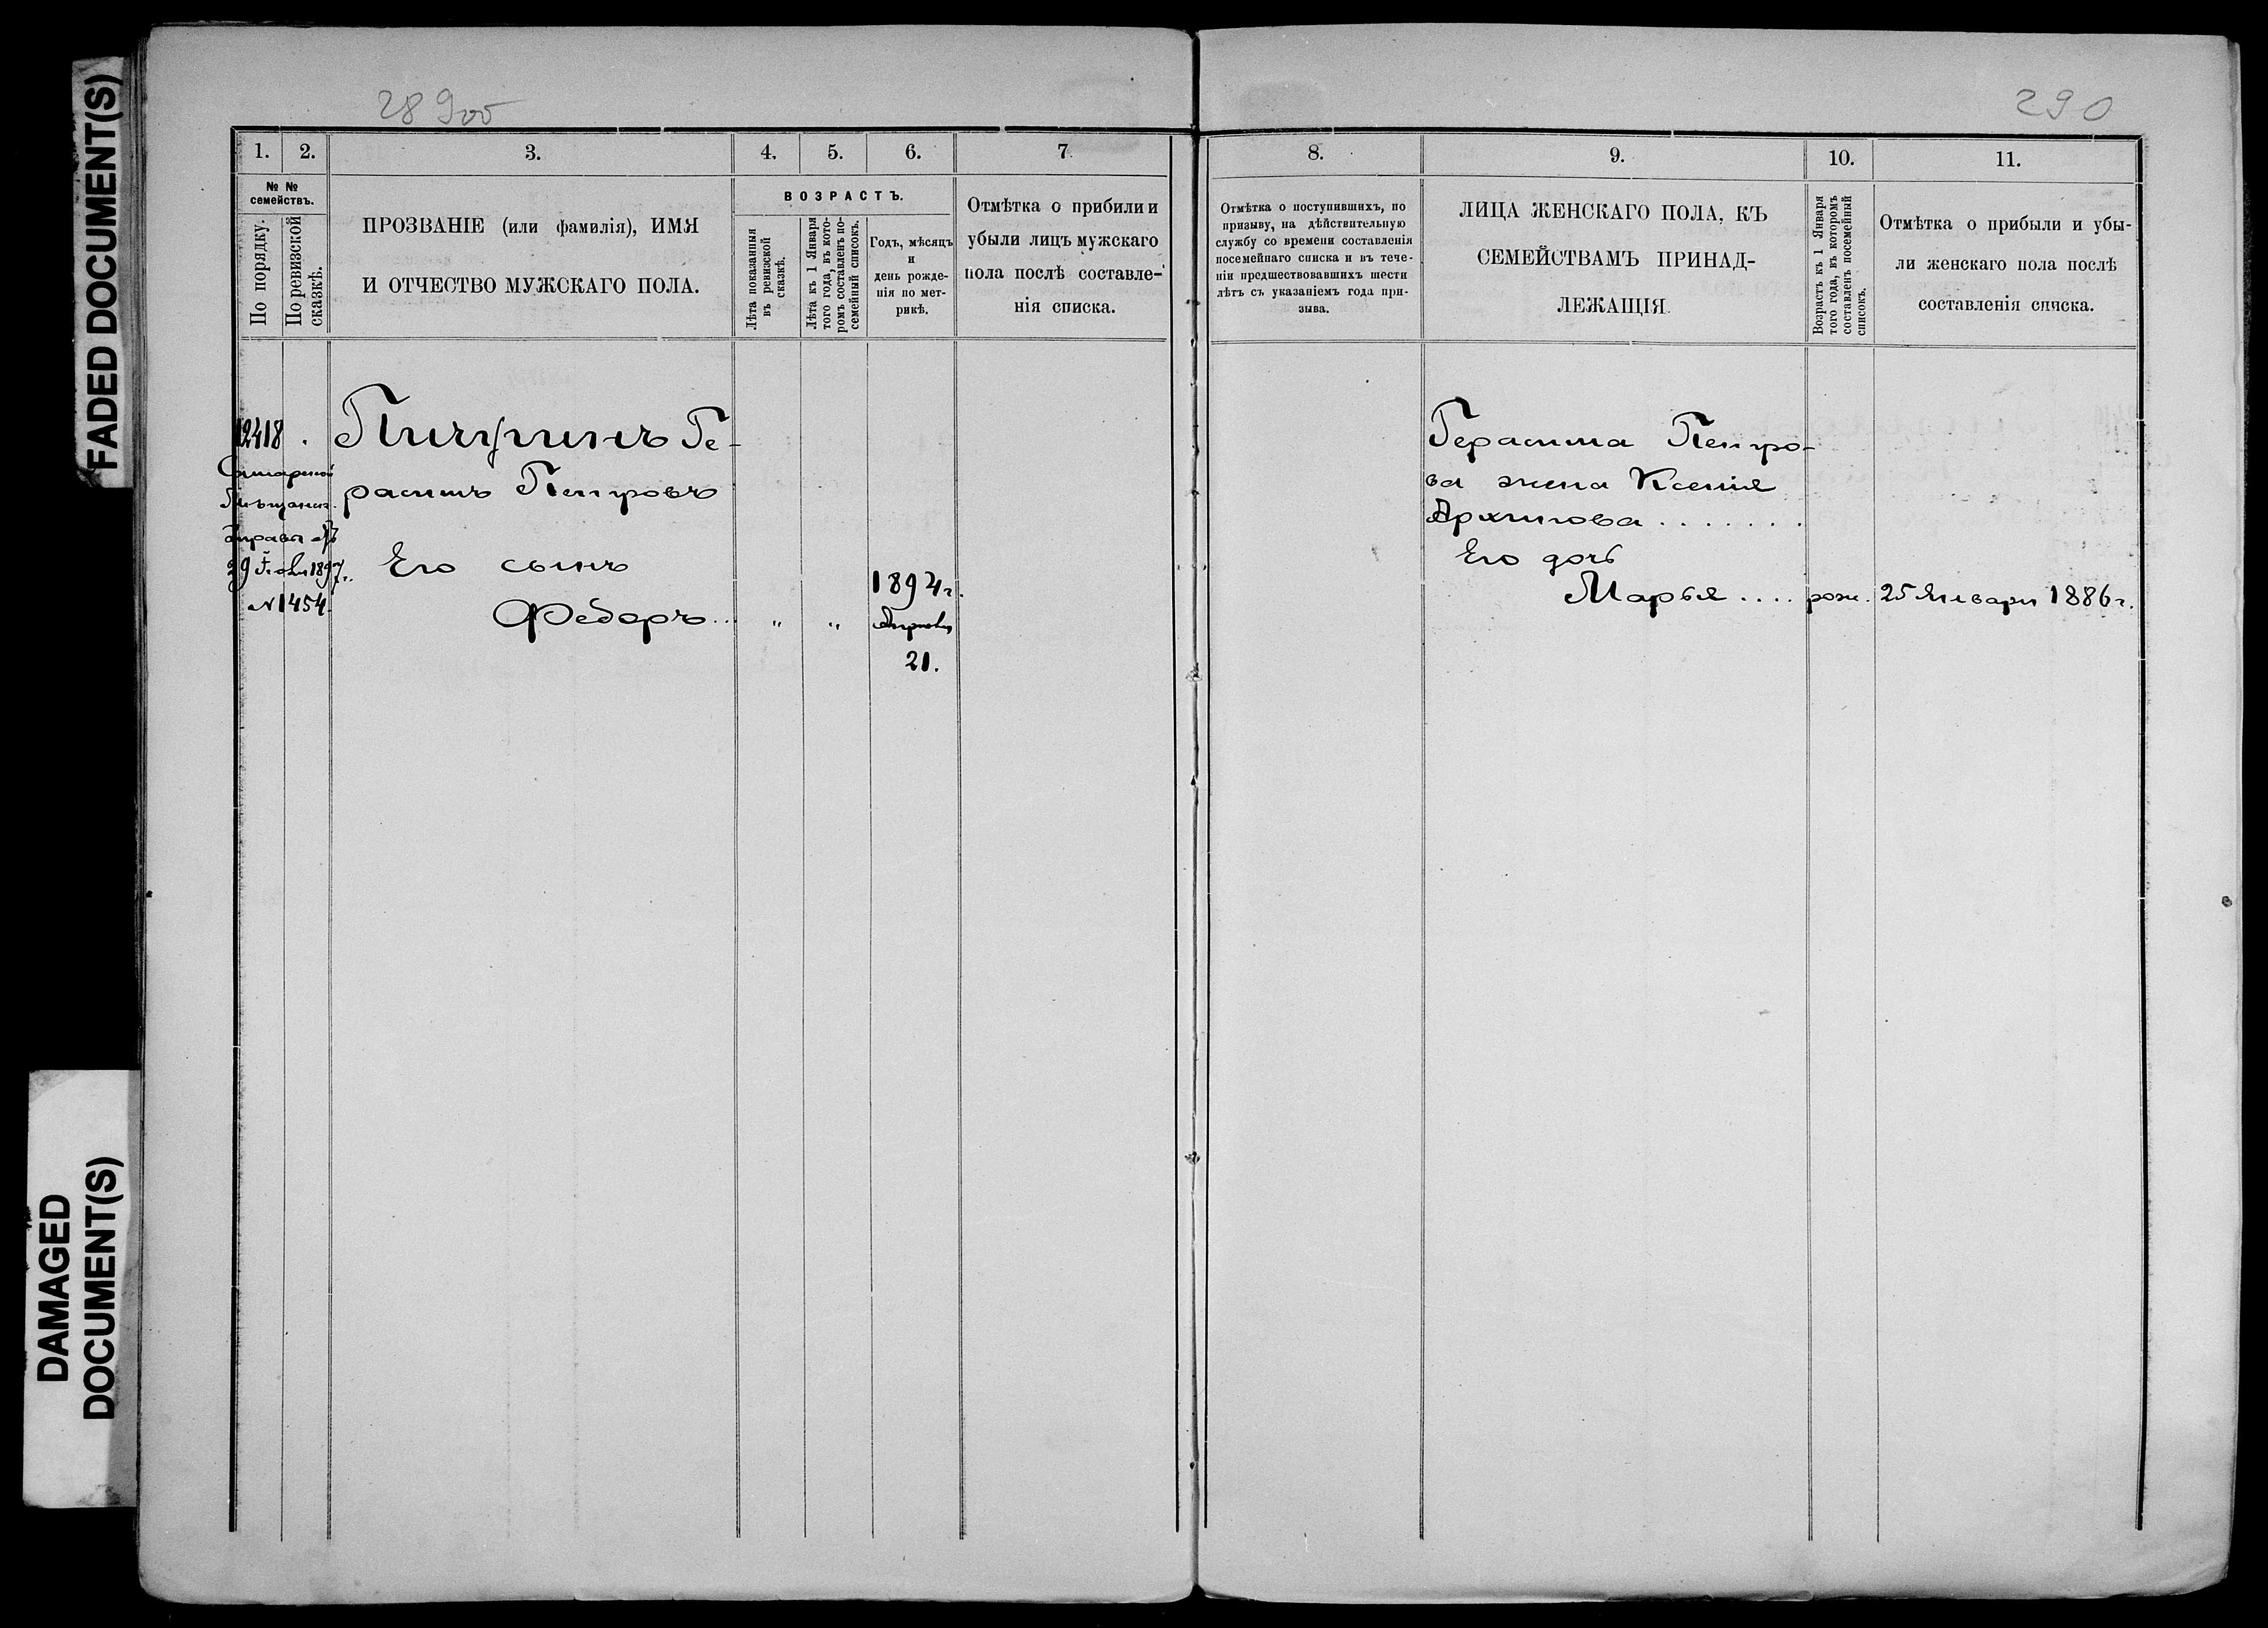 FADED DOCUMENT(S)
DAMAGED
DOCUMENT(S)
289об
1. 2. 3. 4. 5. 6. 7.
№ №
семействъ.
По порядку.
По ревизской
сказкѣ.
ПРОЗВАНІЕ (или фамилія), ИМЯ
И ОТЧЕСТВО МУЖСКАГО ПОЛА.
ВОЗРАСТЪ.
Лѣта показанныя
въ ревизской
сказкѣ.
Лѣта къ 1 Января
того года, въ кото-
ромъ составленъ по-
семейный списокъ.
Годъ, мѣсяцъ
и
день рожде-
нія по мет-
рикѣ.
Отмѣтка о прибыли и
убыли лицъ мужскаго
пола послѣ составле-
нія списка.
12418.
Самарской
Мѣщанск.
Управы №
29 Іюля 1897г.
№ 1454.
Пичугинъ Ге-
расимъ Петровъ
Его сынъ
Федоръ... " "
1894г.
Апрѣля
21.
290
8. 9. 10. 11.
Отмѣтка о поступившихъ, по
призыву, на дѣйствительную
службу со времени составленія
посемейнаго списка и въ тече-
ніи предшествовавшихъ шести
лѣтъ съ указаніемъ года при-
зыва.
ЛИЦА ЖЕНСКАГО ПОЛА, КЪ
СЕМЕЙСТВАМЪ ПРИНАД-
ЛЕЖАЩІЯ.
Возрастъ къ 1 Января
того года, въ которомъ
составленъ посемейный
списокъ.
Отмѣтка о прибыли и убы-
ли женскаго пола послѣ
составленія списка.
Герасима Петро-
ва жена Ксенія
Архипова .......
Его дочь
Марья .... рож. 25 Января 1886г.